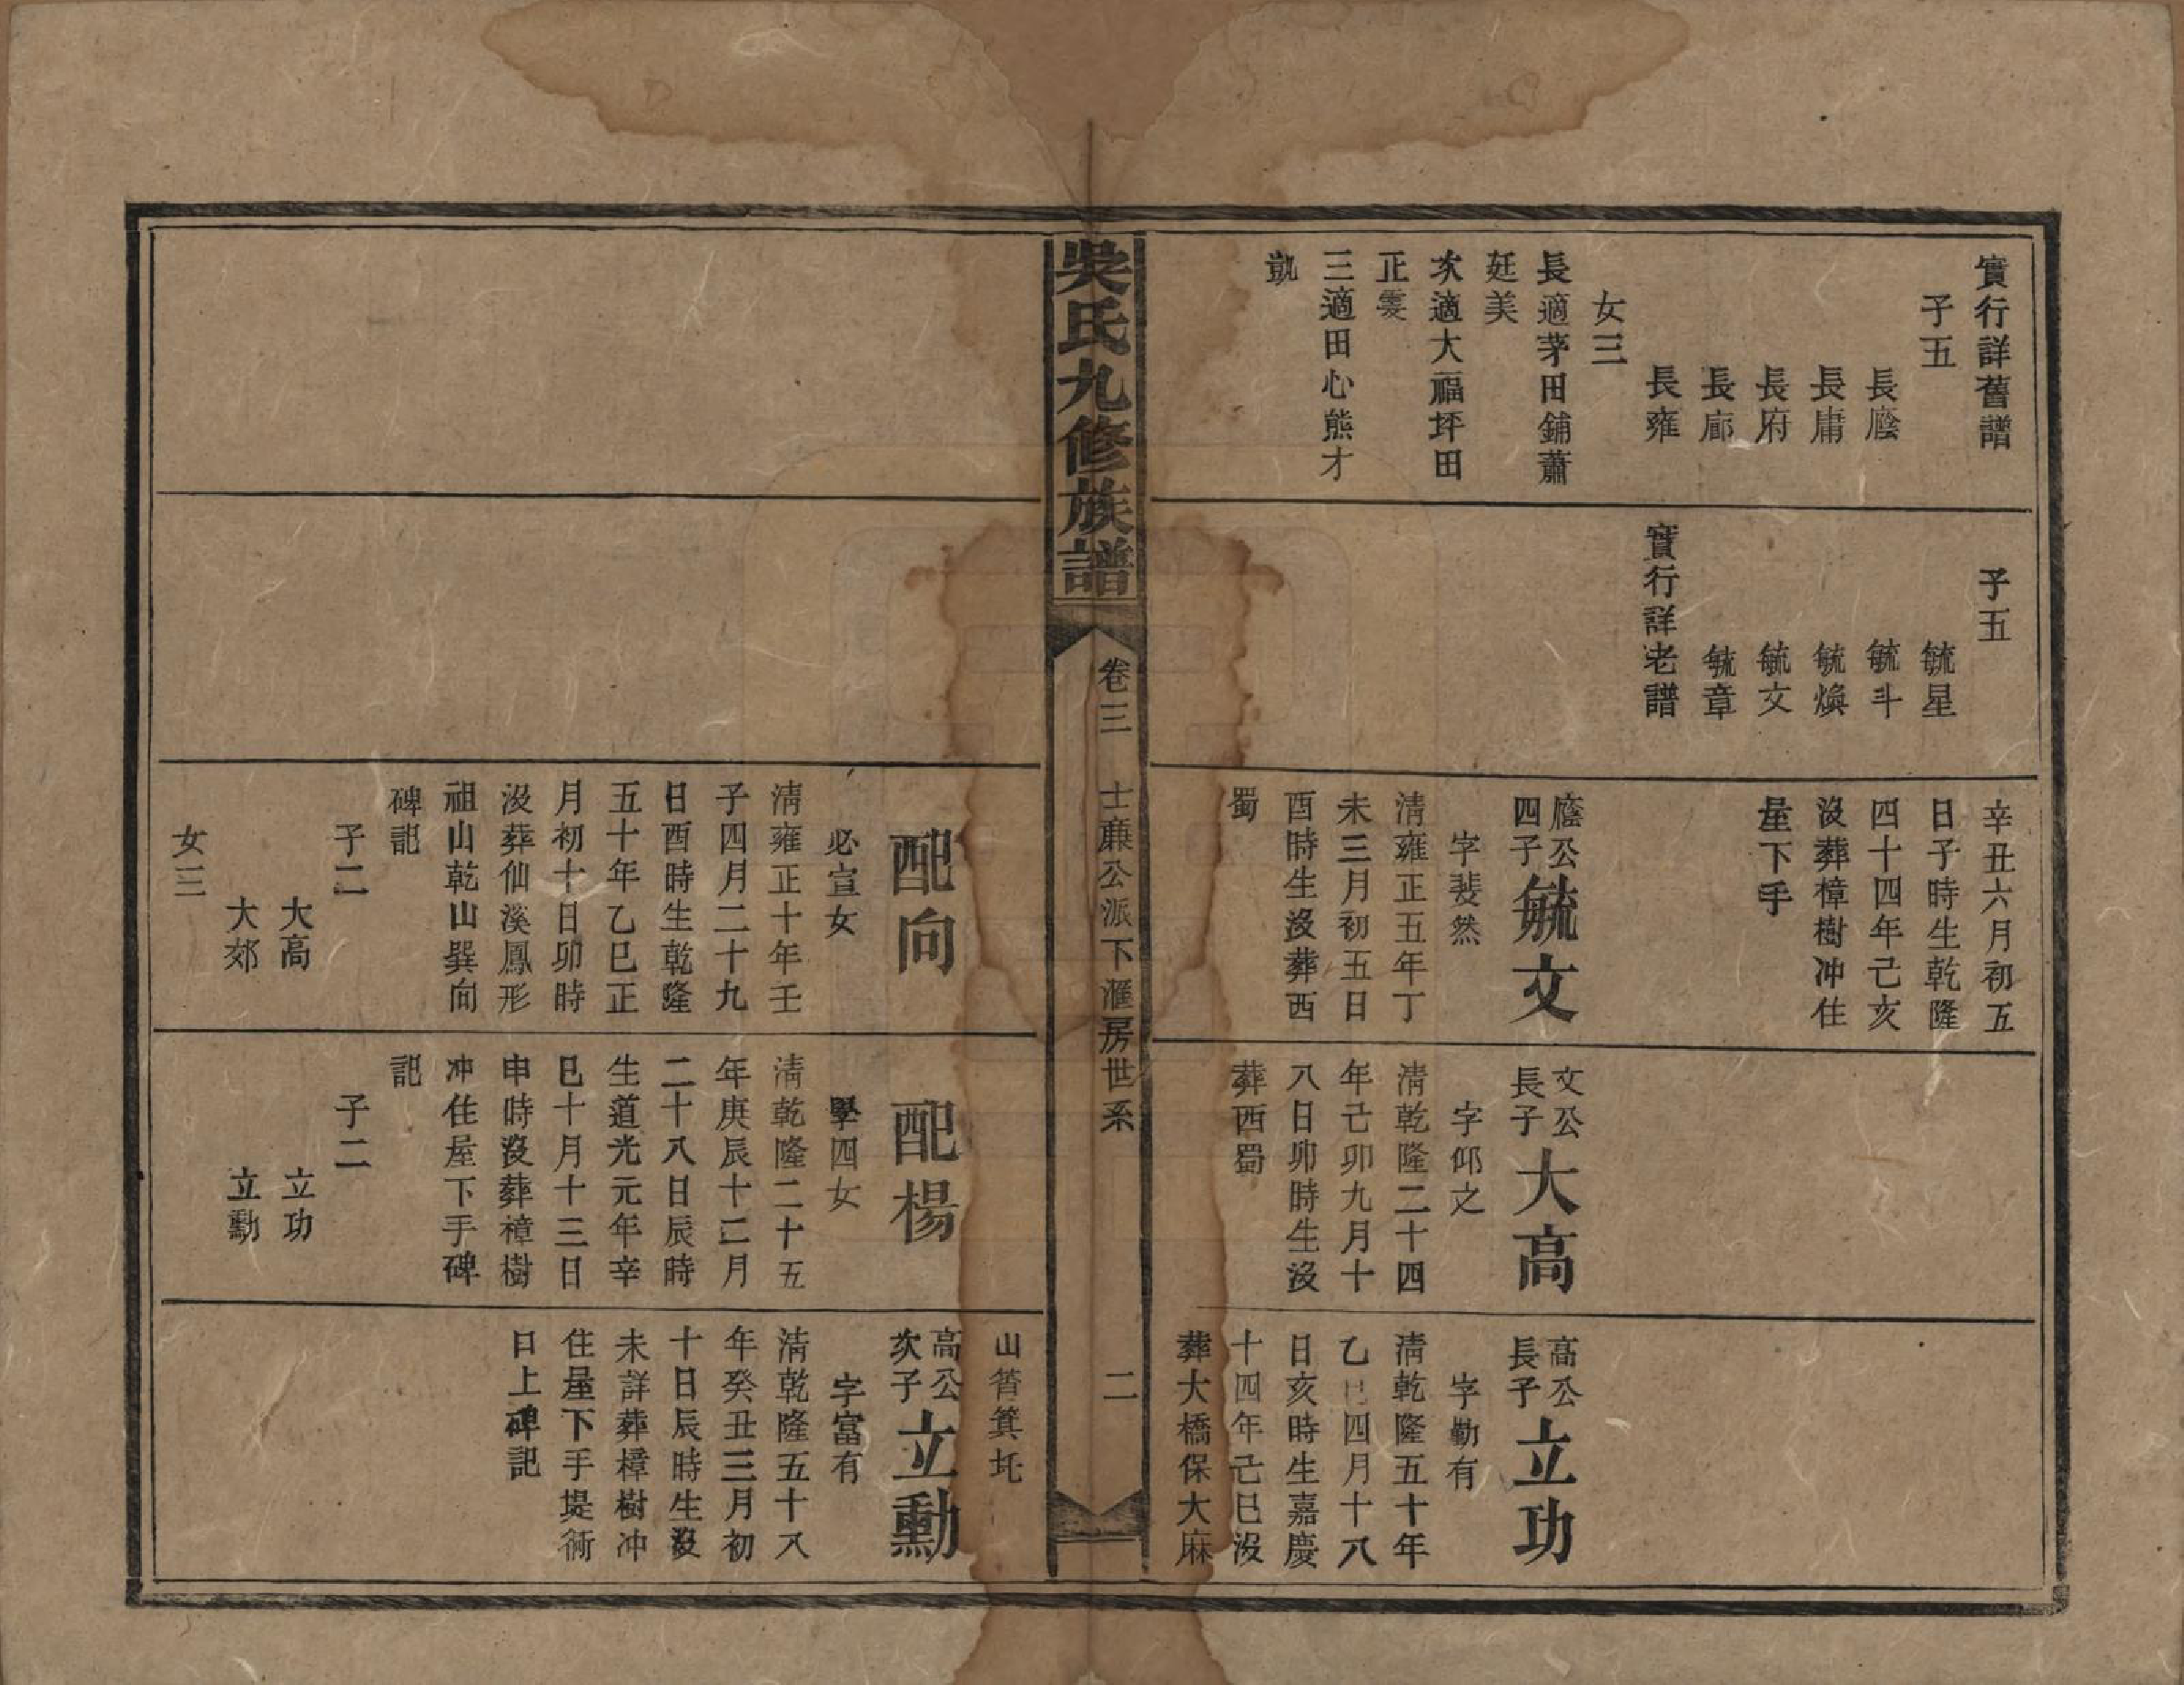 實行詳舊譜
子五
長廕
長庸
長府
長廊
長雍
女三
長適茅田鋪蕭
廷美
次適大福坪田
正雯
三適田心熊才
凱
子五
毓星
毓斗
毓煥
毓文
毓章
實行詳老譜
辛丑六月初五
日子時生乾隆
四十四年己亥
沒葬樟樹冲住
屋下手
廕公
四子
毓文
字斐然
清雍正五年丁
未三月初五日
酉時生沒葬西
蜀
文公
長子
大高
字仰之
清乾隆二十四
年己卯九月十
八日卯時生沒
葬西蜀
高公
長子
立功
字勤有
清乾隆五十年
乙巳四月十八
日亥時生嘉慶
十四年己巳沒
葬大橋保大麻
吳氏九修族譜
卷三
士廉公派下滙房世系
二
配向
必宣女
清雍正十年壬
子四月二十九
日酉時生乾隆
五十年乙巳正
月初十日卯時
沒葬仙溪鳳形
祖山乾山巽向
碑記
子二
大高
大郊
女三
配楊
學四女
清乾隆二十五
年庚辰十二月
二十八日辰時
生道光元年辛
巳十月十三日
申時沒葬樟樹
冲住屋下手碑
記
子二
立功
立勳
山筲箕圫
高公
次子
立勳
字富有
清乾隆五十八
年癸丑三月初
十日辰時生沒
未詳葬樟樹冲
住屋下手堤衕
口上碑記